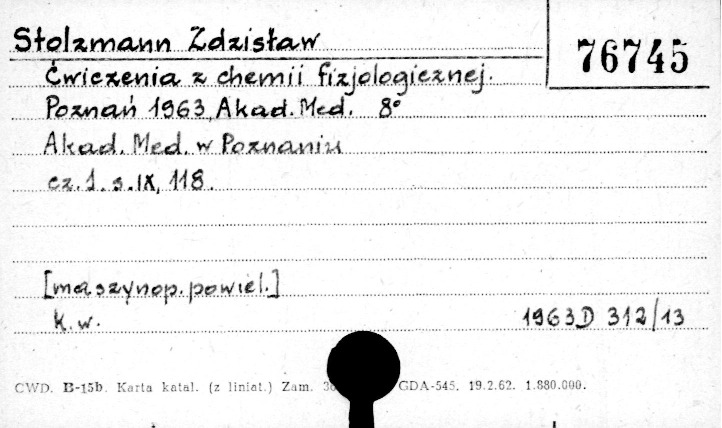 Stolzmann Zdzisław
76745
Ćwiczenia z chemii fizjologicznej.
Poznań 1963, Akad. Med. 8°
Akad. Med. w Poznaniu
cz. 1. s. IX, 118.
[maszynop. powiel.]
k.w.
1963 D 312/13
CWD. B-15b. Karta katal. (z liniat.) Zam. GDA-545. 19.2.62. 1.880.000.